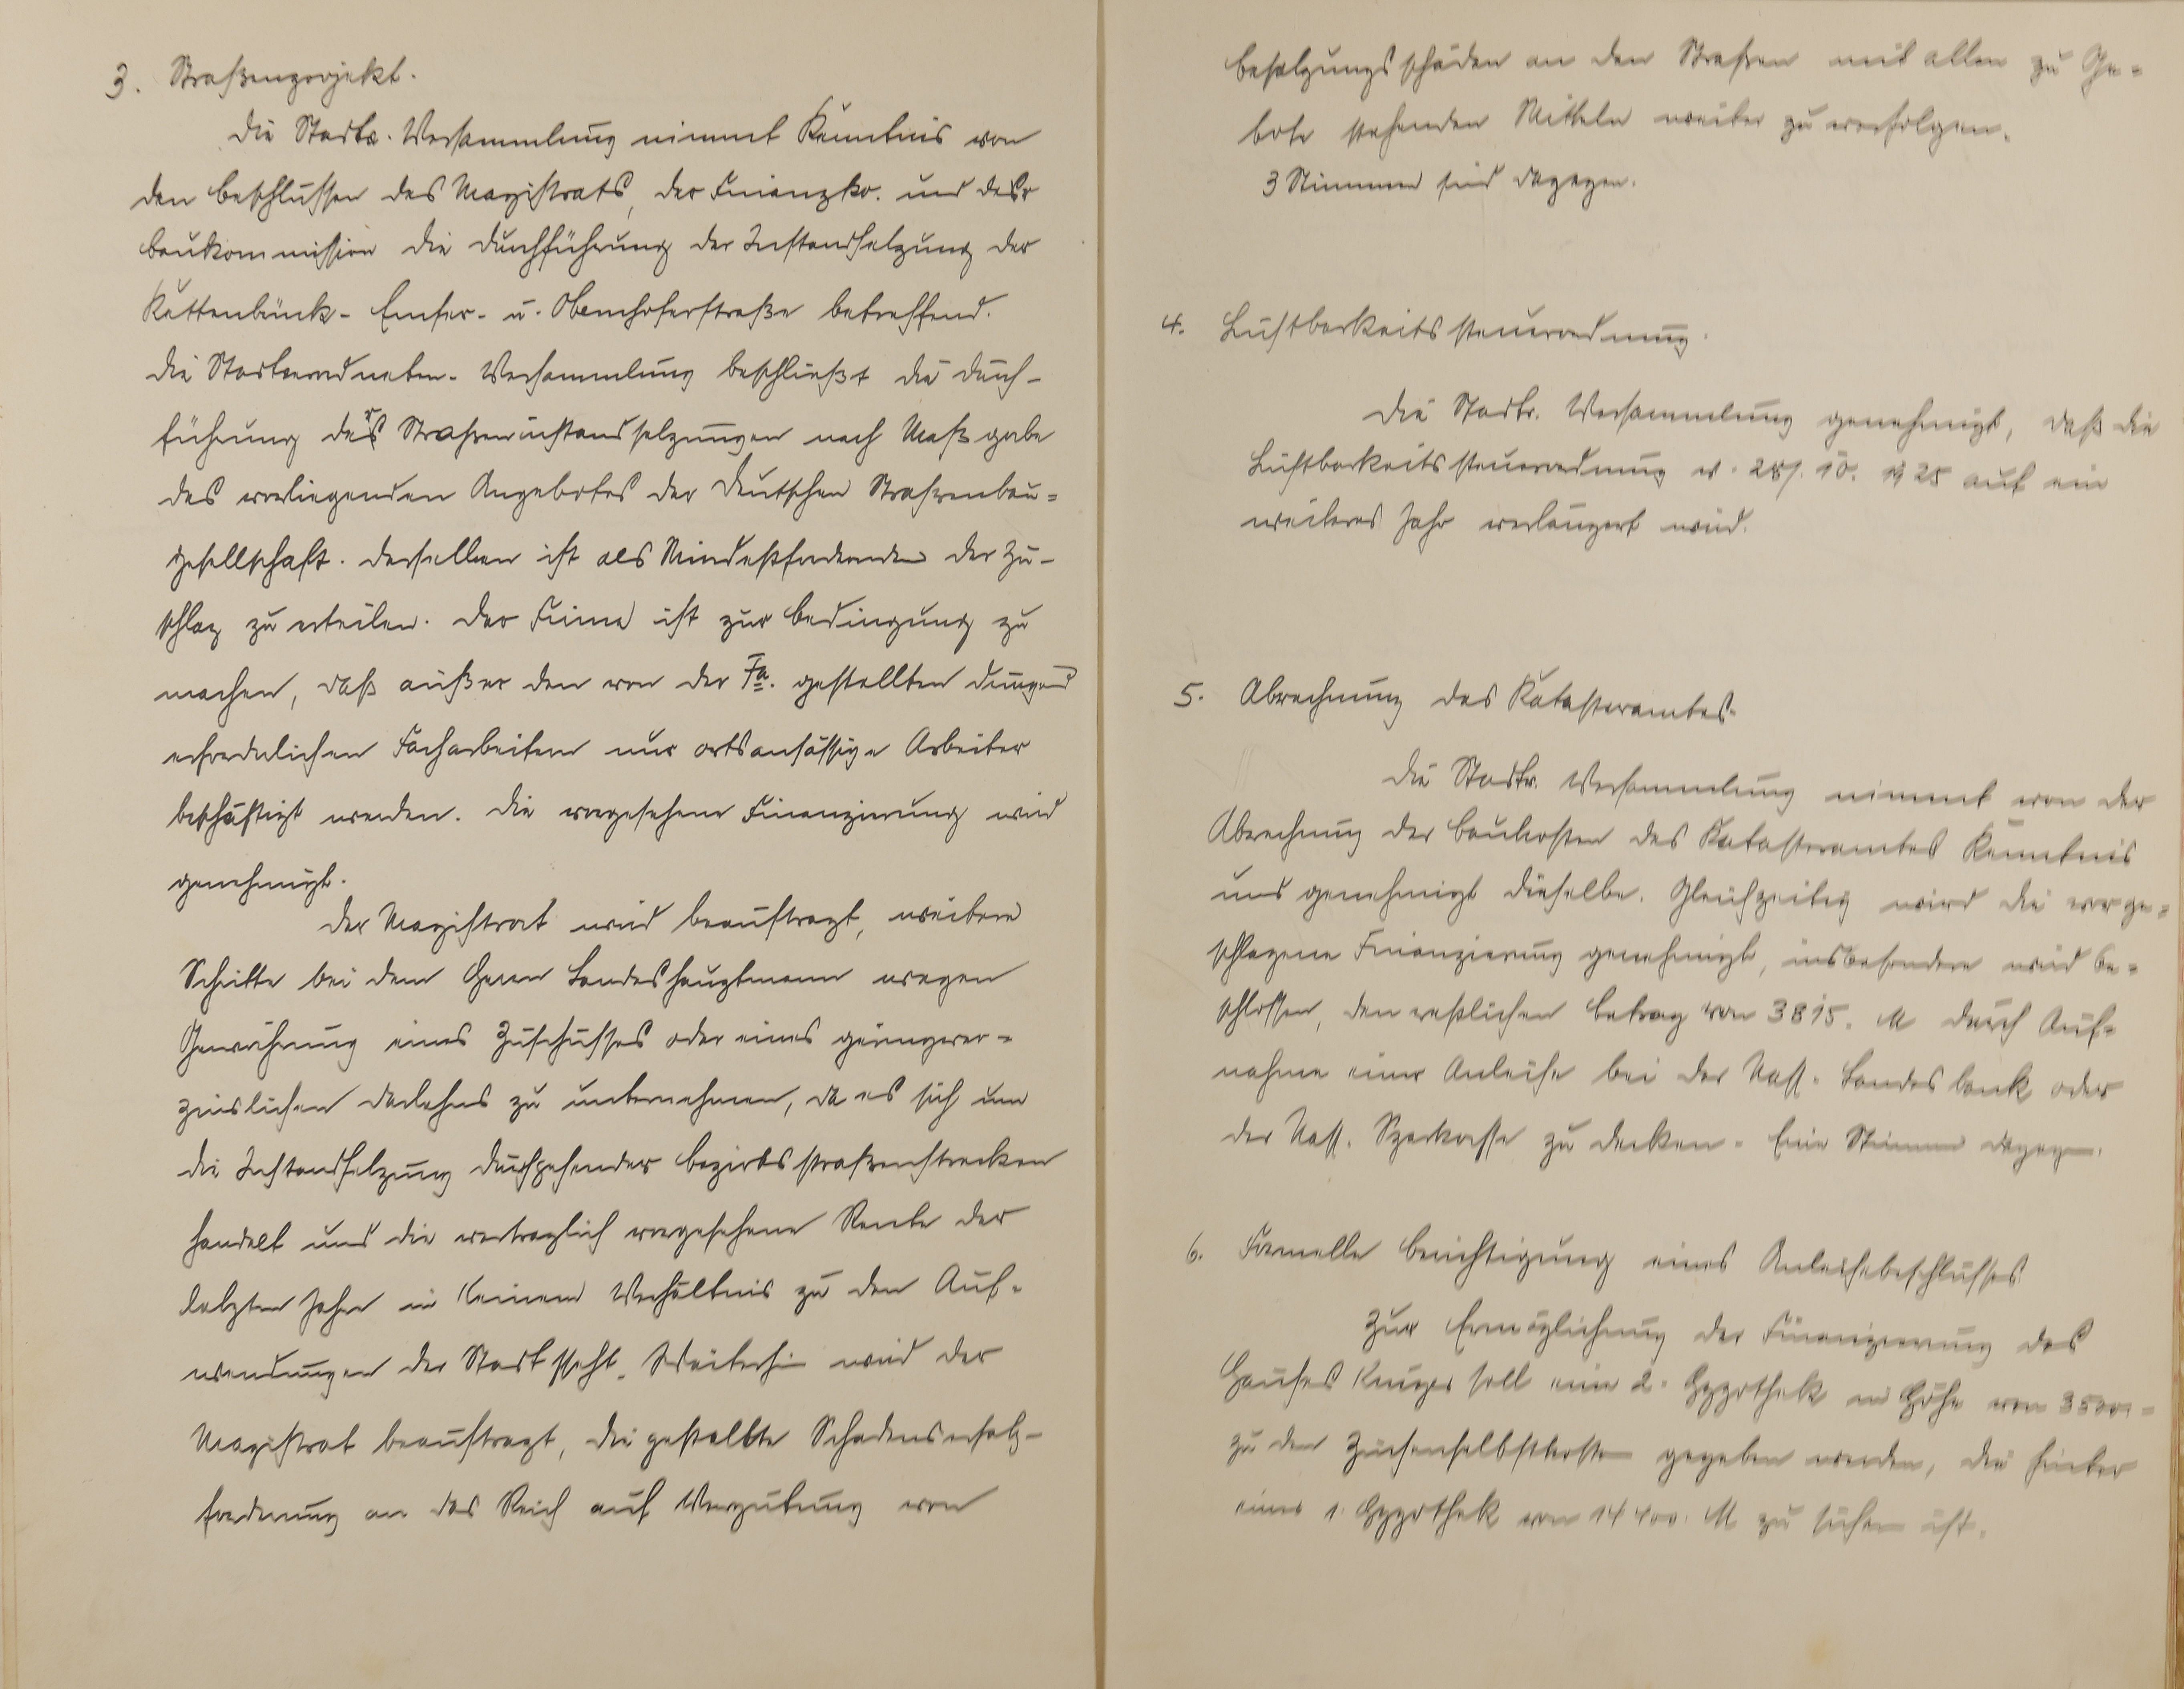 3. Straßenprojekt.
Die Stadtv. Versammlung nimmt Kenntnis von
den Beschlüssen des Magistrats, der Finanzko. und der
Baukommission die Durchführung der Instandsetzung der
Kettenbrück- Emser- u. Obernhoferstraße betreffend.
Die Stadtverordneten-Versammlung beschließt die Durch-
führung der Straßeninstandsetzungen nach Maßgabe
des vorliegenden Angebotes der Deutschen Strassenbau=
gesellschaft. Derselben ist als Mindestfordernden der Zu-
schlag zu erteilen. Der Firma ist zur Bedingung zu
machen, daß außer den von der Fa. gestellten dringend
erforderlichen Facharbeitern nur ortsansässige Arbeiter
beschäftigt werden. Die vorgesehene Finanzierung wird
genehmigt.
Der Magistrat wird beauftragt, weitere
Schritte bei dem Herrn Landeshauptmann wegen
Gewährung eines Zuschusses oder eines geringver=
zinslichen Darlehns zu unternehmen, da es sich um
die Instandsetzung durchgehender Bezirksstraßenstrecken
handelt und die vertraglich vorgesehene Rente der
letzten Jahre in keinem Verhältnis zu den Auf=
wendungen der Stadt steht. Weiterhin wird der
Magistrat beauftragt, die gestellte Schadensersatz-
forderung an das Reich auf Vergütung von
Besatzungsschäden an den Straßen mit allen zu Ge=
bote stehenden Mitteln weiter zu verfolgen.
3 Stimmen sind dagegen.
4. Lustbarkeitssteuerordnung.
Die Stadtv. Versammlung genehmigt, daß die
Lustbarkeitssteuerordnung v. 10. 1925 auf ein
weiteres Jahr verlängert wird.
5. Abrechnung des Katasteramtes.
Die Stadtv. Versammlung nimmt von der
Abrechnung der Baukosten des Katasteramtes Kenntnis
und genehmigt dieselbe. Gleichzeitig wird die vorge=
schlagene Finanzierung genehmigt, insbesondere wird be=
schlossen, den restlichen Betrag von 3815. M durch Auf=
nahme einer Anleihe bei der Nass. Landesbank oder
der Nass. Sparkasse zu decken. Eine Stimme dagegen.
6. Formelle Berichtigung eines Anleihebeschlusses
Zur Ermöglichung der Finanzierung des
Hauses soll eine 2. Hypothek in Höhe von 3500.-
zu den Zinsenselbstkosten gegeben werden, die hinter
einer 1. Hypothek von 14400. M zu ist.